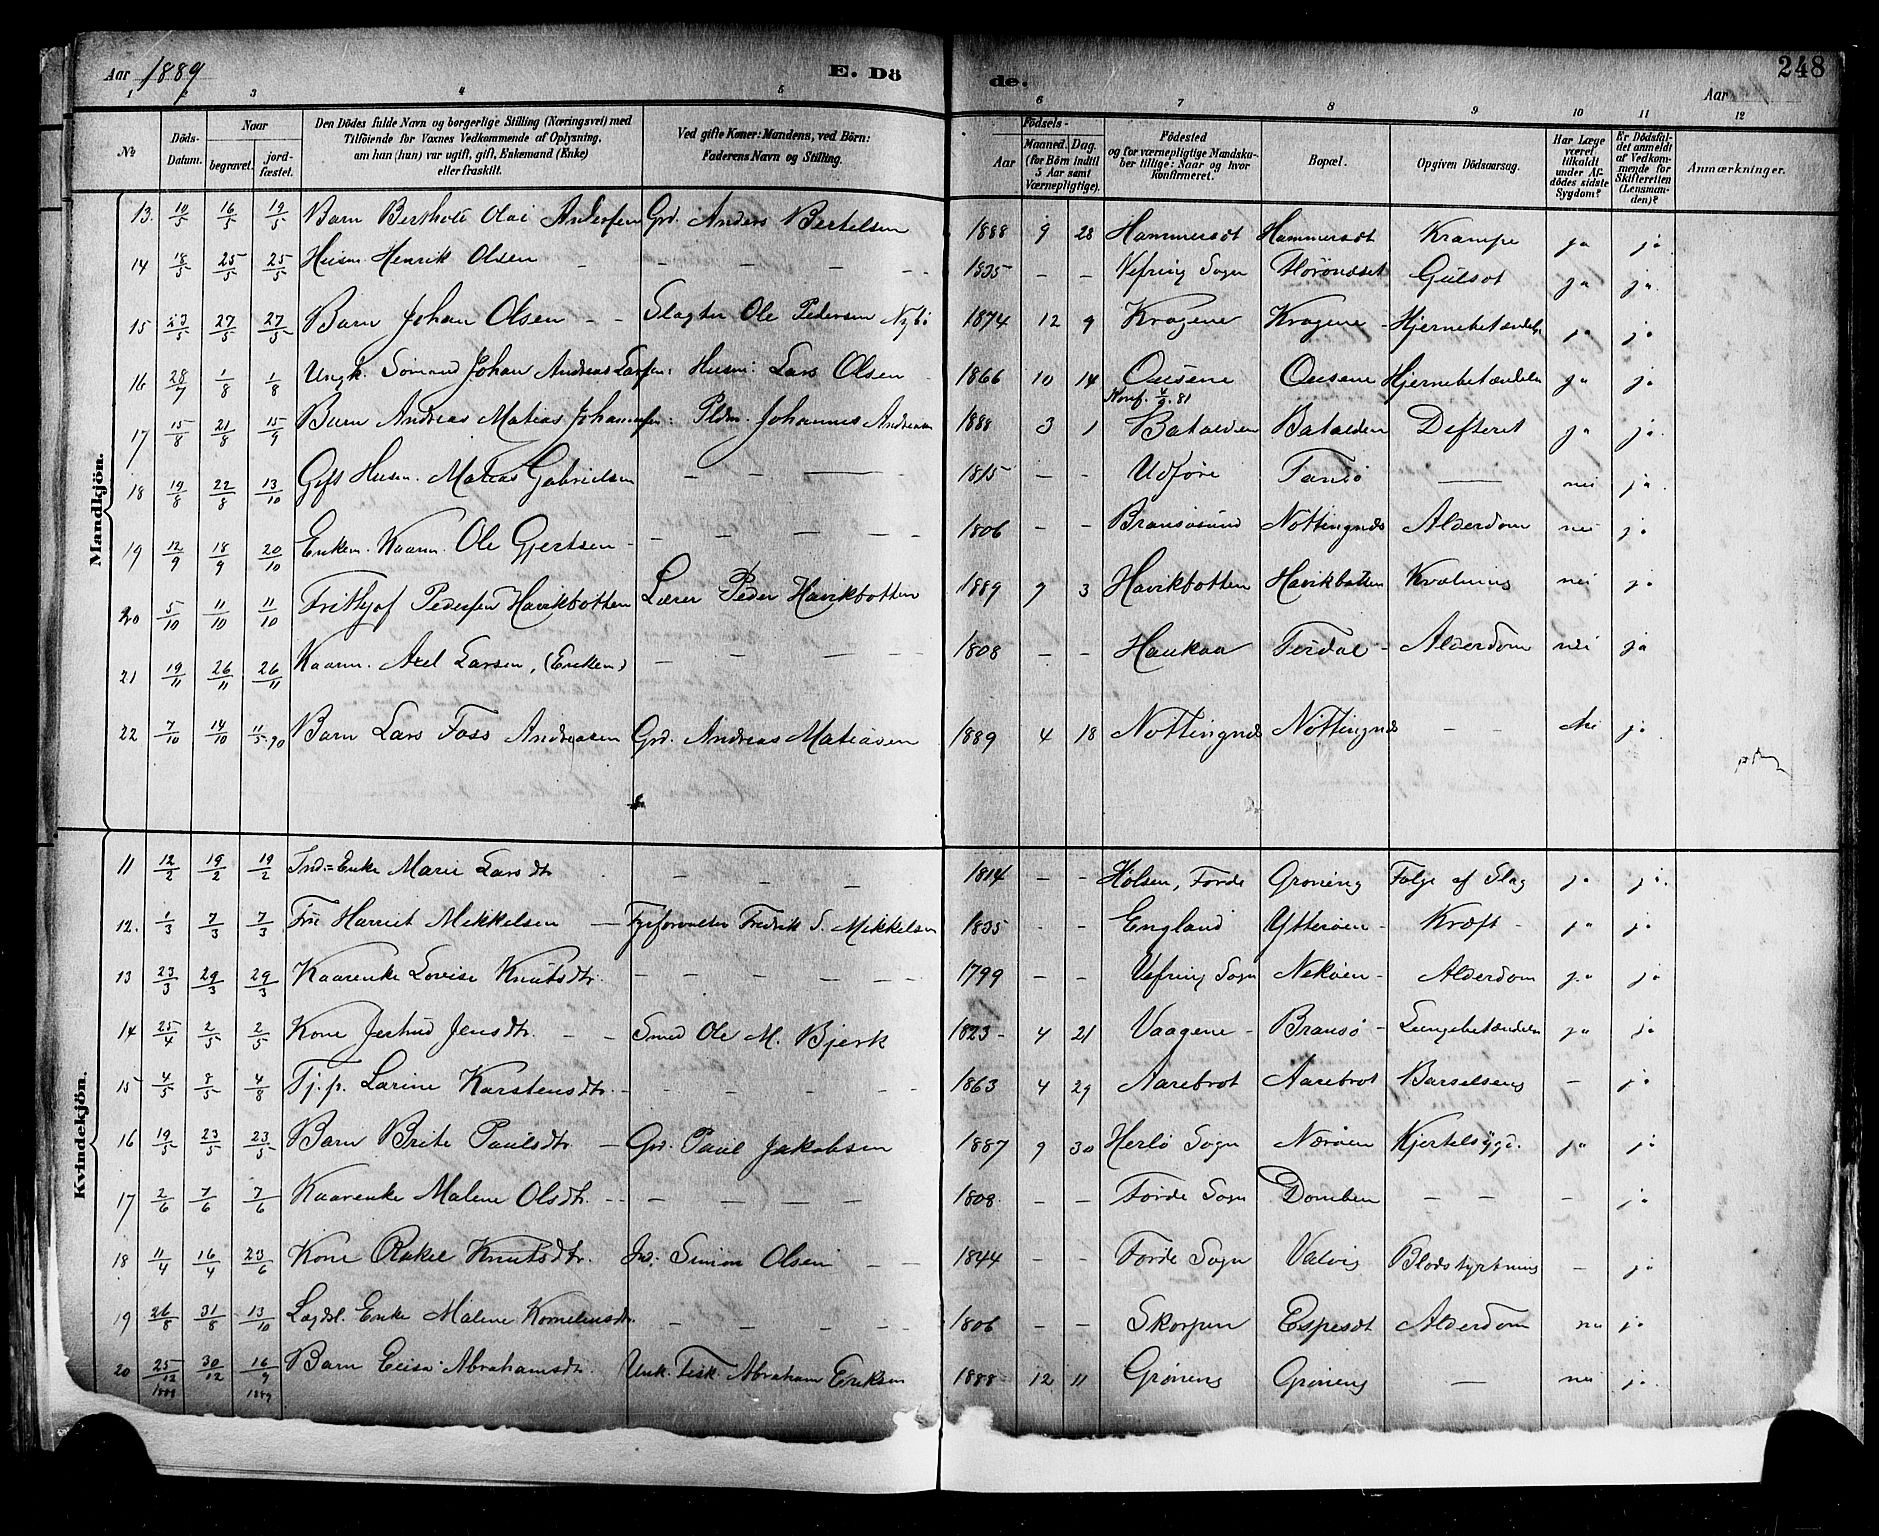 Aar 1889 E. Döde. Aar 248
1 2 3 4 5 6 7 8 9 10 11 12
No
Döds-Datum.
Naar begravet. jordfæstet.
Den Dödes fulde Navn og borgerlige Stilling (Næringsvei) med Tilföiende for Voxnes Vedkommende af Oplysning, om han (hun) var ugift, gift, Enkemand (Enke) eller fraskilt.
Ved gifte Koner: Mandens, ved Börn: Faderens Navn og Stilling.
Födsels- Aar Maaned. Dag. (for Börn indtil 5 Aar samt Værnepligtige).
Födested og for værnepligtige Mandskaber tillige: Naar og hvor Konfirmeret.
Bopæl.
Opgiven Dödsaarsag.
Har Læge været tilkaldt under Afdödes sidste Sygdom?
Er Dödsfaldet anmeldt af Vedkommende for Skifteretten (Lensmanden)?
Anmærkninger.
Mandkjön.
13. 10/5 16/5 19/5 Barn Bertholt Olai Andersen Grd. Anders Bertelsen 1888 9 28 Hammersdt Hammersdt Krampe ja ja
14 18/5 25/5 25/5 Husm. Henrik Olsen - - - 1835 - - Vefring Sogn Gulsot ja ja.
15 23/5 27/5 27/5 Barn Johan Olsen - - Slagter Ole Pedersen Nybö 1874 12 9 Kragene Kragene - Hjernebetændelse ja ja
16 28/7 1/8 1/8 Ungk. Sömand Johan Andreas Larsen: Husm: Lars Olsen 1866 10 14 Ousene Ousene Hjernebetændelse ja ja
Konf. 81
17 15/8 21/8 15/9 Barn Andreas Matias Johannesen: Pldm. Johannes Andreasen 1888 3 1 Batalden Batalden Defterit ja ja.
18 19/8 22/8 13/10 Gift Husm. Matias Gabrielsen - - - 1815 - - Udföre Fansö - nei ja
19 12/9 18/9 20/10 Enkem. Kaarm. Ole Gjertsen - - - 1806 - - Bransösund Nöttingnæs Alderdom nei ja
20 5/10 11/10 11/10 Frithjof Pedersen Havikbotten Lærer Peder Havikbotten 1889 9 3 Havikbotten Havikbotten Kvælning nei ja
21 19/11 26/11 26/11 Kaarm. Axel Larsen, (Enkem) - - - 1808 - - Haukaa Terdal - Alderdom nei ja
22 7/10 14/10 11/5 90 Barn Lars Foss Andreasen Grd. Andreas Matiasen 1889 4 18 Nöttingnæs Nöttingnæs - - nei ja
Kvindekjön.
11 12/2 19/2 19/2 Ind.= Enke Marie Larsdtr - - - 1814 - - Hölsen, Förde Gröning Fölge af Slag ja ja.
12. 1/3 7/3 7/3 Frue Harriet Mikkelsen - Fyrforvalter Fredrik S. Mikkelsen 1835 - - England Ytterøen - Kræft - ja ja
13 23/3 29/3 29/3 Kaarenke Lovise Knutsdtr. - - - 1799 - - Vefring Sogn Nekøen - Alderdom ja ja
14 25/4 2/5 2/5 Kone Jertrud Jensdtr. - - Smed Ole M. Bjerk 1823 - 4 21 Vaagene - Bransö - Lungebetændelse ja ja
15 4/5 8/5 4/8 Tj.p. Larine Karstensdtr. - - - 1863 4 29 Aarebrot Aarebrot Barselseng - ja
16 19/5 23/5 23/5 Barn Brite Paulsdtr. - Grd. Paul Jakobsen 1887 9 30 Herlö Sogn Næröen Kjertelsyge. ja ja
17 2/6 7/6 7/6 Kaarenke Malene Olsdtr. - - - 1808. - - Förde Sogn Domben - - - ja
18 11/4 16/4 23/6 Kone Rakel Knutsdtr. Ind. Simon Olsen - - 1844 - - Förde Sogn Valvig Blodstyrtning - ja
19 26/8 31/8 13/10 Lægdsl. Enke Malene Kornelensdtr. - - - 1806 - - Skorpen Espesdt Alderdom nei ja
20 25/12 1888 30/12 16/9 1889 Barn Elisa Abrahamsdtr. Unk. Fisk. Abraham Eriksen 1888 12 11 Gröning Gröning - nei ja.